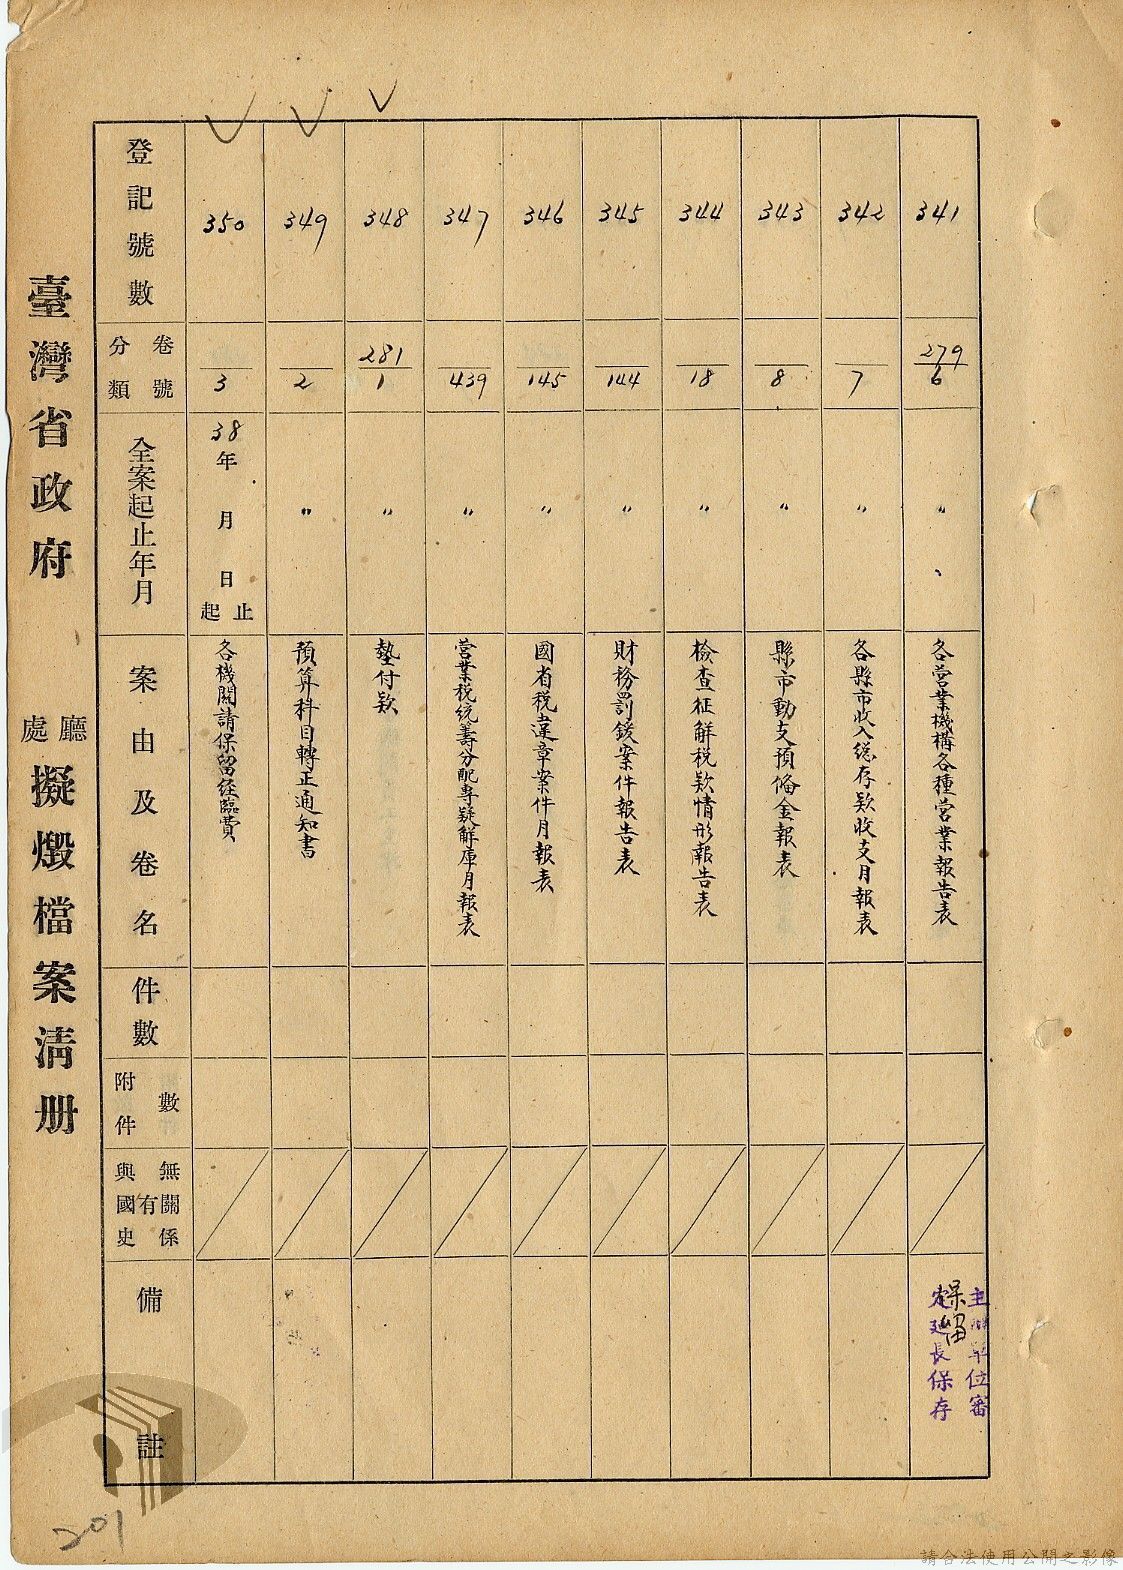 登記號數
分類 卷號
全案起止年月
案由及卷名
件數
附件 數
與國史 有無關係
備註
341
279
6
〃
各營業機構各種營業報告表
主辦單位審
定延長保存
保留
342
7
〃
各縣市收入總存款收支月報表
343
8
〃
縣市動支預備金報表
344
18
〃
檢查征解税款情形報告表
345
144
〃
財務罰鍰案件報告表
346
145
〃
國省税違章案件月報表
347
439
〃
營業税統籌分配專疑解庫月報表
348
281
1
〃
墊付款
349
2
〃
預算科目轉正通知書
350
3
38年 月 日
起止
各機關請保留经臨費
臺灣省政府 處廳 擬燬檔案清册
201
請合法使用公開之影像